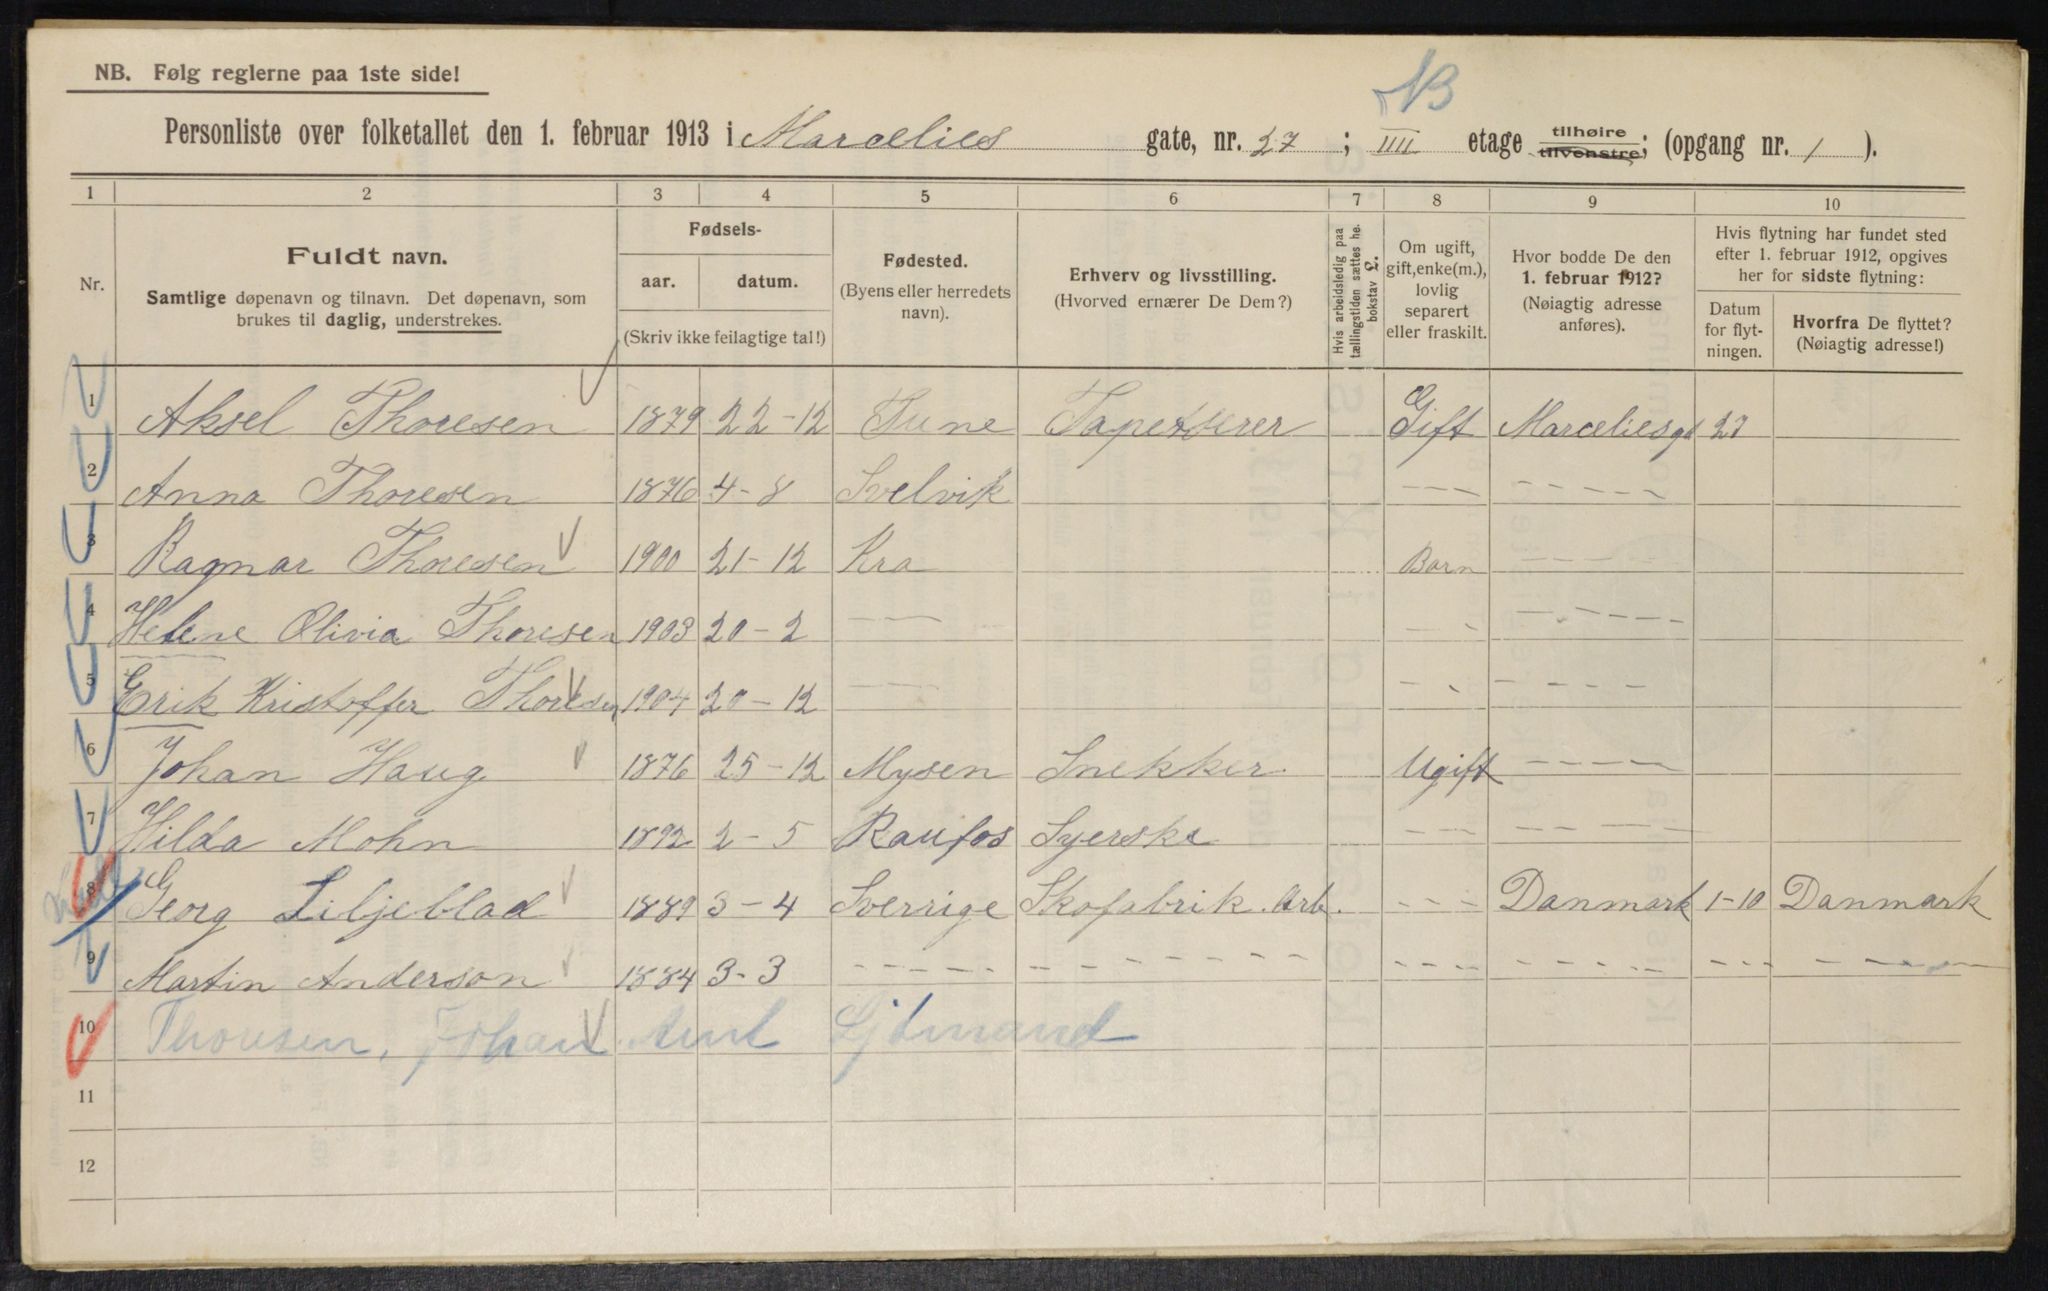 NB. Følg reglerne paa 1ste side!
NB
Personliste over folketallet den 1. februar 1913 i Marcelies gate, nr. 27 ; IIII etage tilhøire tilvenstre; (opgang nr. 1 ).
1 2 3 4 5 6 7 8 9 10
Nr.
Fuldt navn.
Samtlige døpenavn og tilnavn. Det døpenavn, som
brukes til daglig, understrekes.
Fødsels-
aar. datum.
(Skriv ikke feilagtige tal!)
Fødested.
(Byens eller herredets
navn).
Erhverv og livsstilling.
(Hvorved ernærer De Dem?)
Hvis arbeidsledig paa
tællingstiden sættes he.
bokstav L.
Om ugift,
gift, enke(m.),
lovlig
separert
eller fraskilt.
Hvor bodde De den
1. februar 1912?
(Nøiagtig adresse
anføres).
Hvis flytning har fundet sted
efter 1. februar 1912, opgives
her for sidste flytning:
Datum
for flyt-
ningen.
Hvorfra De flyttet?
(Nøiagtig adresse!)
1 Aksel Thoresen 1879 22-12 Tune Tapetserer Gift Marceliesgt 27
2 Anna Thoresen 1876 4-8 Svelvik --- -----
3 Ragnar Thoresen 1900 21-12 Kra Barn -----
4 Helene Olivia Thoresen 1903 20-2 --- -- -----
5 Erik Kristoffer Thoresen 1904 20-12 --- --- -----
6 Johan Haug 1876 25-12 Mysen Snekker Ugift -----
7 Hilda Mohn 1892 2-5 Raufos Syerske --- -----
8 Georg Liljeblad 1889 3-4 Sverrige Skofabrik. Arb. --- Danmark 1-10 Danmark
9 Martin Anderson 1884 3-3 ----- ------- ---- ----- --- -----
10 Thoresen, Johan Sjømand
11
12